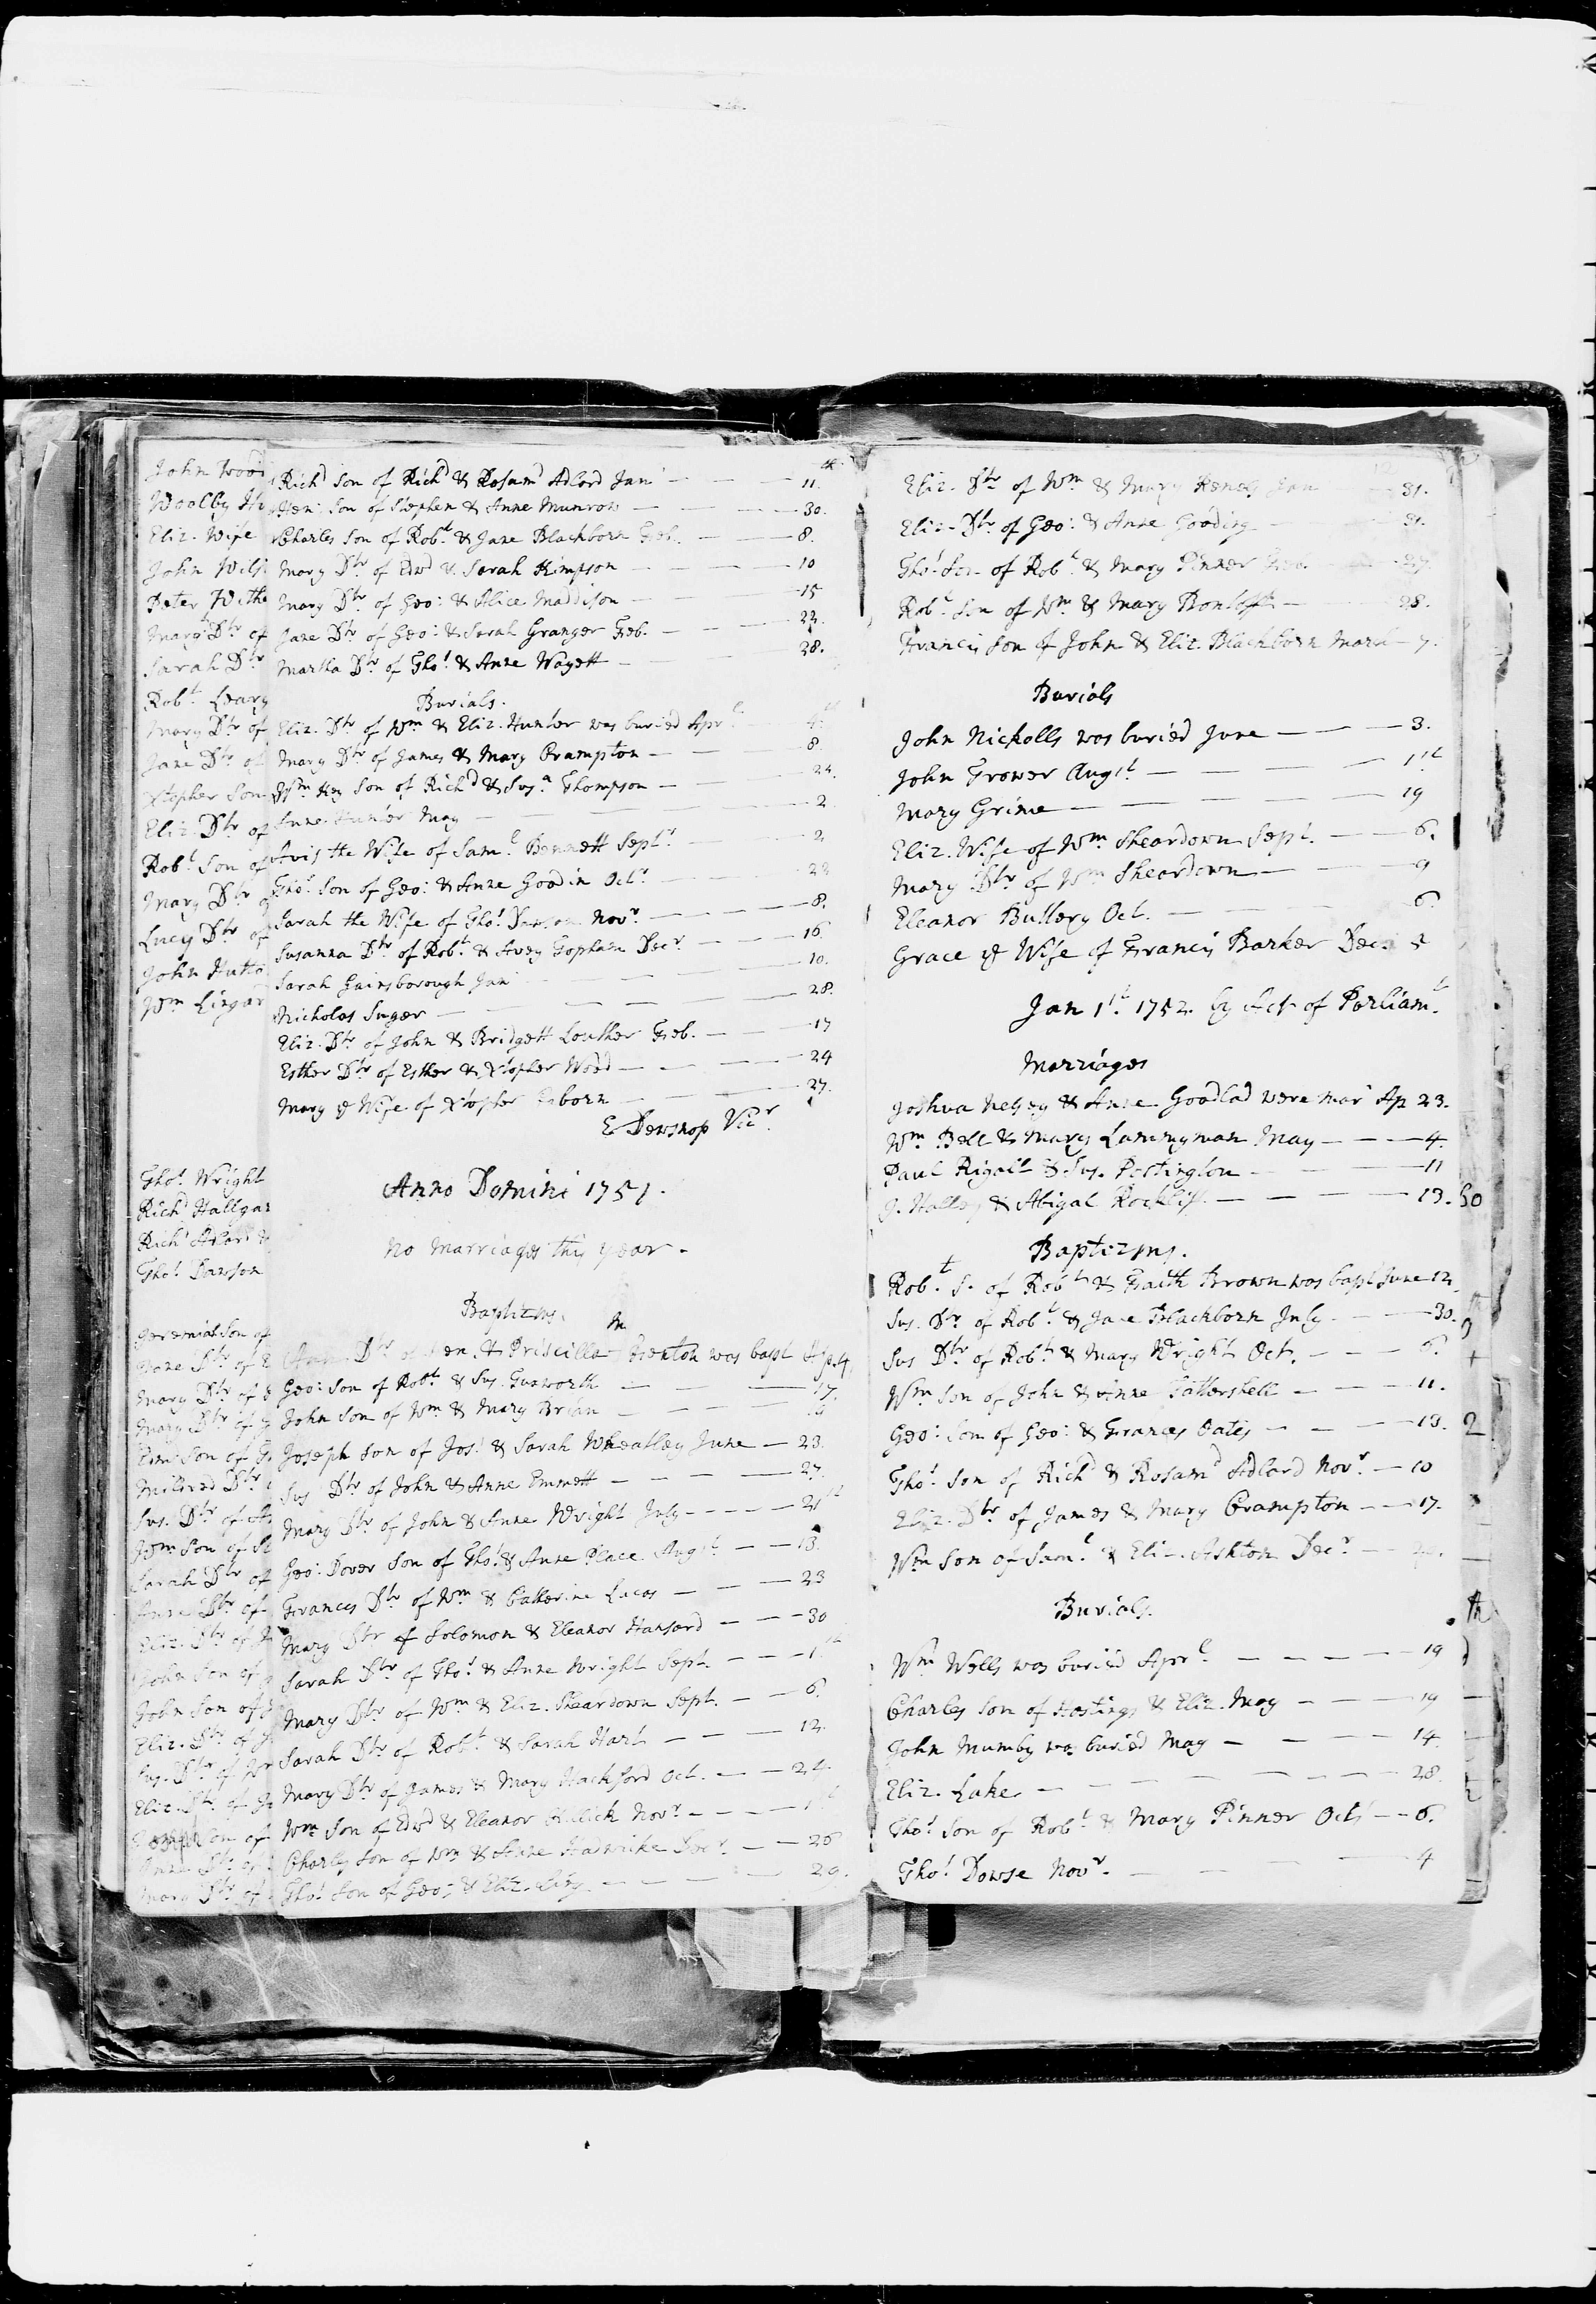 John Wood
Woolby
Eliz. Wife
John Wils
Peter Withe
Marg.t Dtr of
Sarah Dtr
Robt. Leary
Mary Dtr of
Jane Dtr of
Xtopher Son
Eliz. Dtr of
Robt. Son of
Mary Dtr of
Lucy Dtr of
John Hutto
Wm Lingar
Thos. Wright
Richd Hallgar
Richd Adlard
Thos. Dawson
Jeremiah Son of
Jane Dtr of
Mary Dtr of
Mary Dtr of
Son of
Mildred Dtr
Sus. Dtr of
Wm Son of
Sarah Dtr of
Anne Dtr of
Eliz. Dtr of
John Son of
John Son of
Eliz. Dtr of
Sus. Dtr of
Eliz. Dtr of
Son of
Anne Dtr of
Mary Dtr of
Richd Son of Richd & Rosamd Adlard Jan — 11.
Hen: Son of Stephen & Anne Munrow — 30.
Charles Son of Robt. & Jane Blackborn Feb. — 8.
Mary Dtr of Edwd & Sarah Kimpson — 10
Mary Dtr of Geo: & Alice Maddison — 15
Jane Dtr of Geo: & Sarah Granger Feb. — 22.
Martha Dtr of Thos. & Anne Wayett — 28.
Burials.
Eliz. Dtr of Wm & Eliz. Hunter was buried Aprl 4.
Mary Dtr of James & Mary Crampton — 8.
Wm Key Son of Richd & Susa Thompson — 24.
Anne Hunter May — 2
Avis the Wife of Saml. Bennett Septr — 2
Thos. Son of Geo: & Anne Goodin Octr — 22
Sarah the Wife of Thos. Dawson Novr. — 8.
Susanna Dtr of Robt. & Avey Topham Decr — 16
Sarah Gainsborough Jan — 10.
Nicholas Sugar — 28.
Eliz. Dtr of John & Bridgett Louther Feb. — 17
Esther Dtr of Esther & Xtopher Wood — 24
Mary ye Wife of Xtopher — 27.
E Dewsnop Vicr.
Anno Domini 1751.
No Marriages this year.
Baptizms.
Dtr of Hen. & Priscilla Brenton was bapt Ap. 4.
Geo: Son of Robt. & Sus. Tuxworth — 17.
John Son of Wm & Mary Brian —
Joseph Son of Jos: & Sarah Wheatley June — 23.
Sus Dtr of John & Anne Emmett — 27.
Mary Dtr of John & Anne Wright July — 21st
Geo: Dover Son of Thos. & Anne Place Augst. — 13.
Frances Dtr of Wm & Catherine Lucas — 23
Mary Dtr of Solomon & Eleanor Hansard — 30
Sarah Dtr of Thos. & Anne Wright Sept. — 1st
Mary Dtr of Wm & Eliz. Sheardown Sept. — 6.
Sarah Dtr of Robt. & Sarah Hart — 12.
Mary Dtr of James & Mary Hackford Oct. — 24.
Wm Son of Edwd & Eleanor Novr — 1st
Charles Son of Wm & Anne Decr. — 26
Thos. Son of Geo: & Eliz. — 29.
Eliz. Dtr of Wm & Mary Jan — 31.
Eliz. Dtr of Geo: & Anne Gooding — 31.
Thos. Son of Robt. & Mary Pinner Feb. 27.
Robt. Son of Wm & Mary Bontoft — 28.
Francis Son of John & Eliz. Blackborn March — 7.
Burials
John Nicholls was buried June — 3.
John Trower Augst. — 1st
Mary Grime — 19
Eliz. Wife of Wm Sheardown Sept. — 6.
Mary Dtr of Wm Sheardown — 9
Eleanor Bullery Oct. — 6.
Grace ye Wife of Francis Barker Dec. 2
Jan 1st. 1752. by Act of Parliamt.
Marriages
Joshua Nelsey & Anne Goodlad were mar Ap 23.
Wm Bell & Mary Lammyman May — 4.
Paul Rigall & Sus. Partington — 11
J. Halley & Abigal Rocklif — 13.
Baptizms.
Robt. S. of Robt. & Faith Brown was bapt June 12.
Sus. Dtr of Robt. & Jane Blackborn July — 30.
Sus Dtr of Robt. & Mary Wright Oct. — 6.
Wm Son of John & Anne Tattershell — 11.
Geo: Son of Geo: & Frances Oates — 13.
Thos. Son of Richd & Rosamd Adlard Novr. — 10
Eliz. Dtr of James & Mary Crampton — 17.
Wm Son of Saml. & Eliz. Ashton Decr —
Burials.
Wm Wells was buried Aprl. — 19
Charles Son of Hastings & Eliz. May — 19
John Mumby was buried May — 14.
Eliz. Lake — 28
Thos. Son of Robt. & Mary Pinner Octr — 6.
Thos. Dowse Novr. — 4